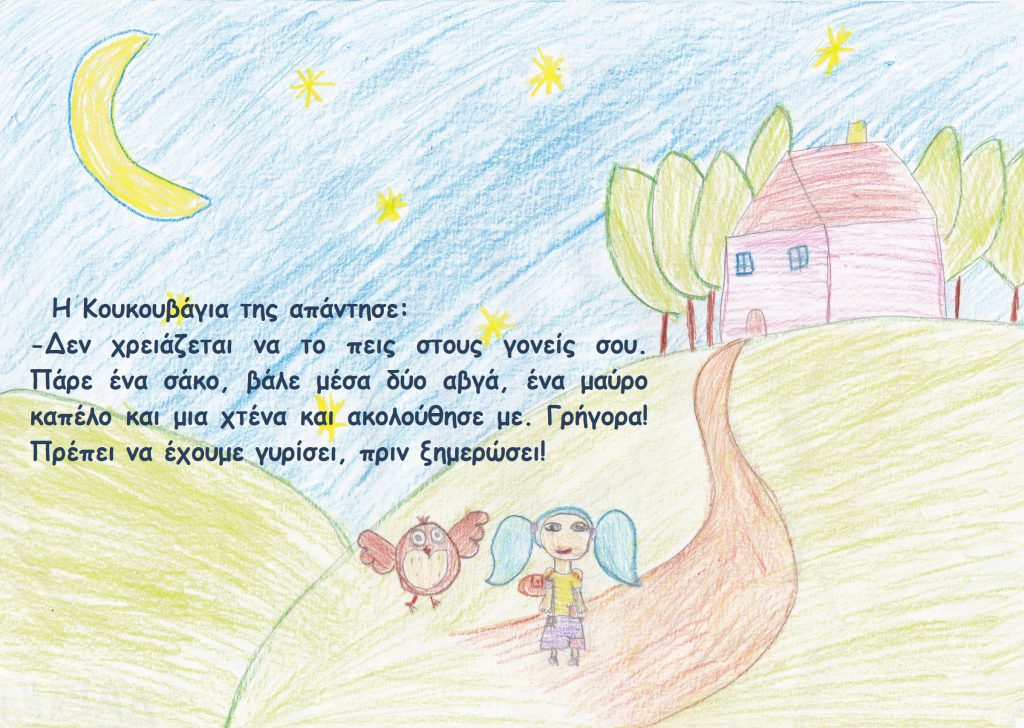 Η Κουκουβάγια της απάντησε:
-Δεν χρειάζεται να το πεις στους γονείς σου.
Πάρε ένα σάκο, βάλε μέσα δύο αβγά, ένα μαύρο
καπέλο και μια χτένα και ακολούθησε με. Γρήγορα!
Πρέπει να έχουμε γυρίσει, πριν ξημερώσει!